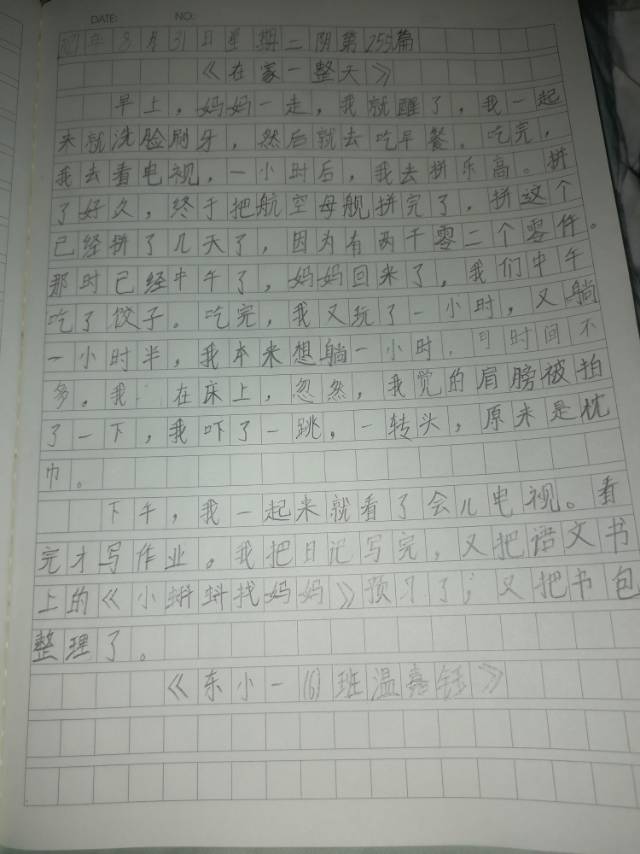 DATE: NO:
2021年8月31日星期二阴第253篇
《在家一整天》
早上，妈妈一走，我就醒了，我一起
来就洗脸刷牙，然后就去吃早餐。吃完，
我去看电视，一小时后，我去拼乐高。拼
了好久，终于把航空母舰拼完了，拼这个
已经拼了几天了，因为有两千零二个零件。
那时已经中午了，妈妈回来了，我们中午
吃了饺子。吃完，我又玩了一小时，又躺
一小时半，我本来想躺一小时，时间不
多。我在床上，忽然，我觉的肩膀被拍
了一下，我吓了一跳，一转头，原来是枕
巾。
下午，我一起来就看了会儿电视。看
完才写作业。我把日记写完，又把语文书
上的《小蝌蚪找妈妈》预习了；又把书包
整理了。
《东小一(6)班温嘉钰》